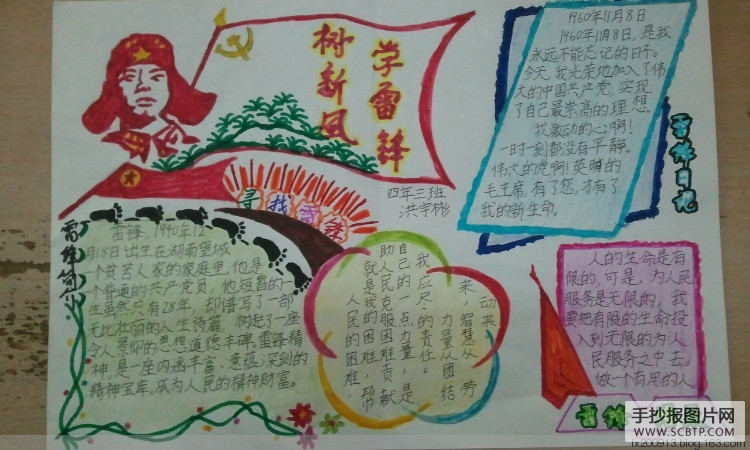 学雷锋
树新风
四年三班
洪宇彬
寻找雷锋
1960年11月8日
1960年11月8日，是我
永远不能忘记的日子。
今天，我光荣地加入了伟
大的中国共产党，实现
了自己最崇高的理想。
我激动的心啊！
一时一刻都没有平静。
伟大的党啊！英明的
毛主席，有了您，才有了
我的新生命。
雷锋日记
雷锋简介
雷锋，1940年12
月18日出生在湖南望城
一个贫苦人家的家庭里，他是
一个普通的共产党员，他短暂的一
生虽然只有28年，却谱写了一部
无比壮丽的人生诗篇，树起了一座
令人景仰的思想道德丰碑，雷锋精
神，是一座内涵丰富，意蕴深刻的
精神宝库，成为人民的精神财富。
力量从团结
来，智慧从劳
动来
我应尽的责任。
自己的一点力量，是
助人民克服困难，贡献
就是我的困难，帮
人民的困难，
人的生命是有
限的，可是，为人民
服务是无限的，我
要把有限的生命投
入到无限的为人
民服务之中去。
做一个有用的人
雷锋
手抄报图片网
WWW.SCBTP.COM
fx200913.blog.163.com